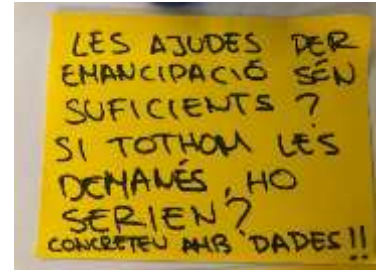 LES AJUDES PER
EMANCIPACIÓ SÓN
SUFICIENTS ?
SI TOTHOM LES
DEMANÉS, HO
SERIEN?
CONCRETEU AMB DADES!!